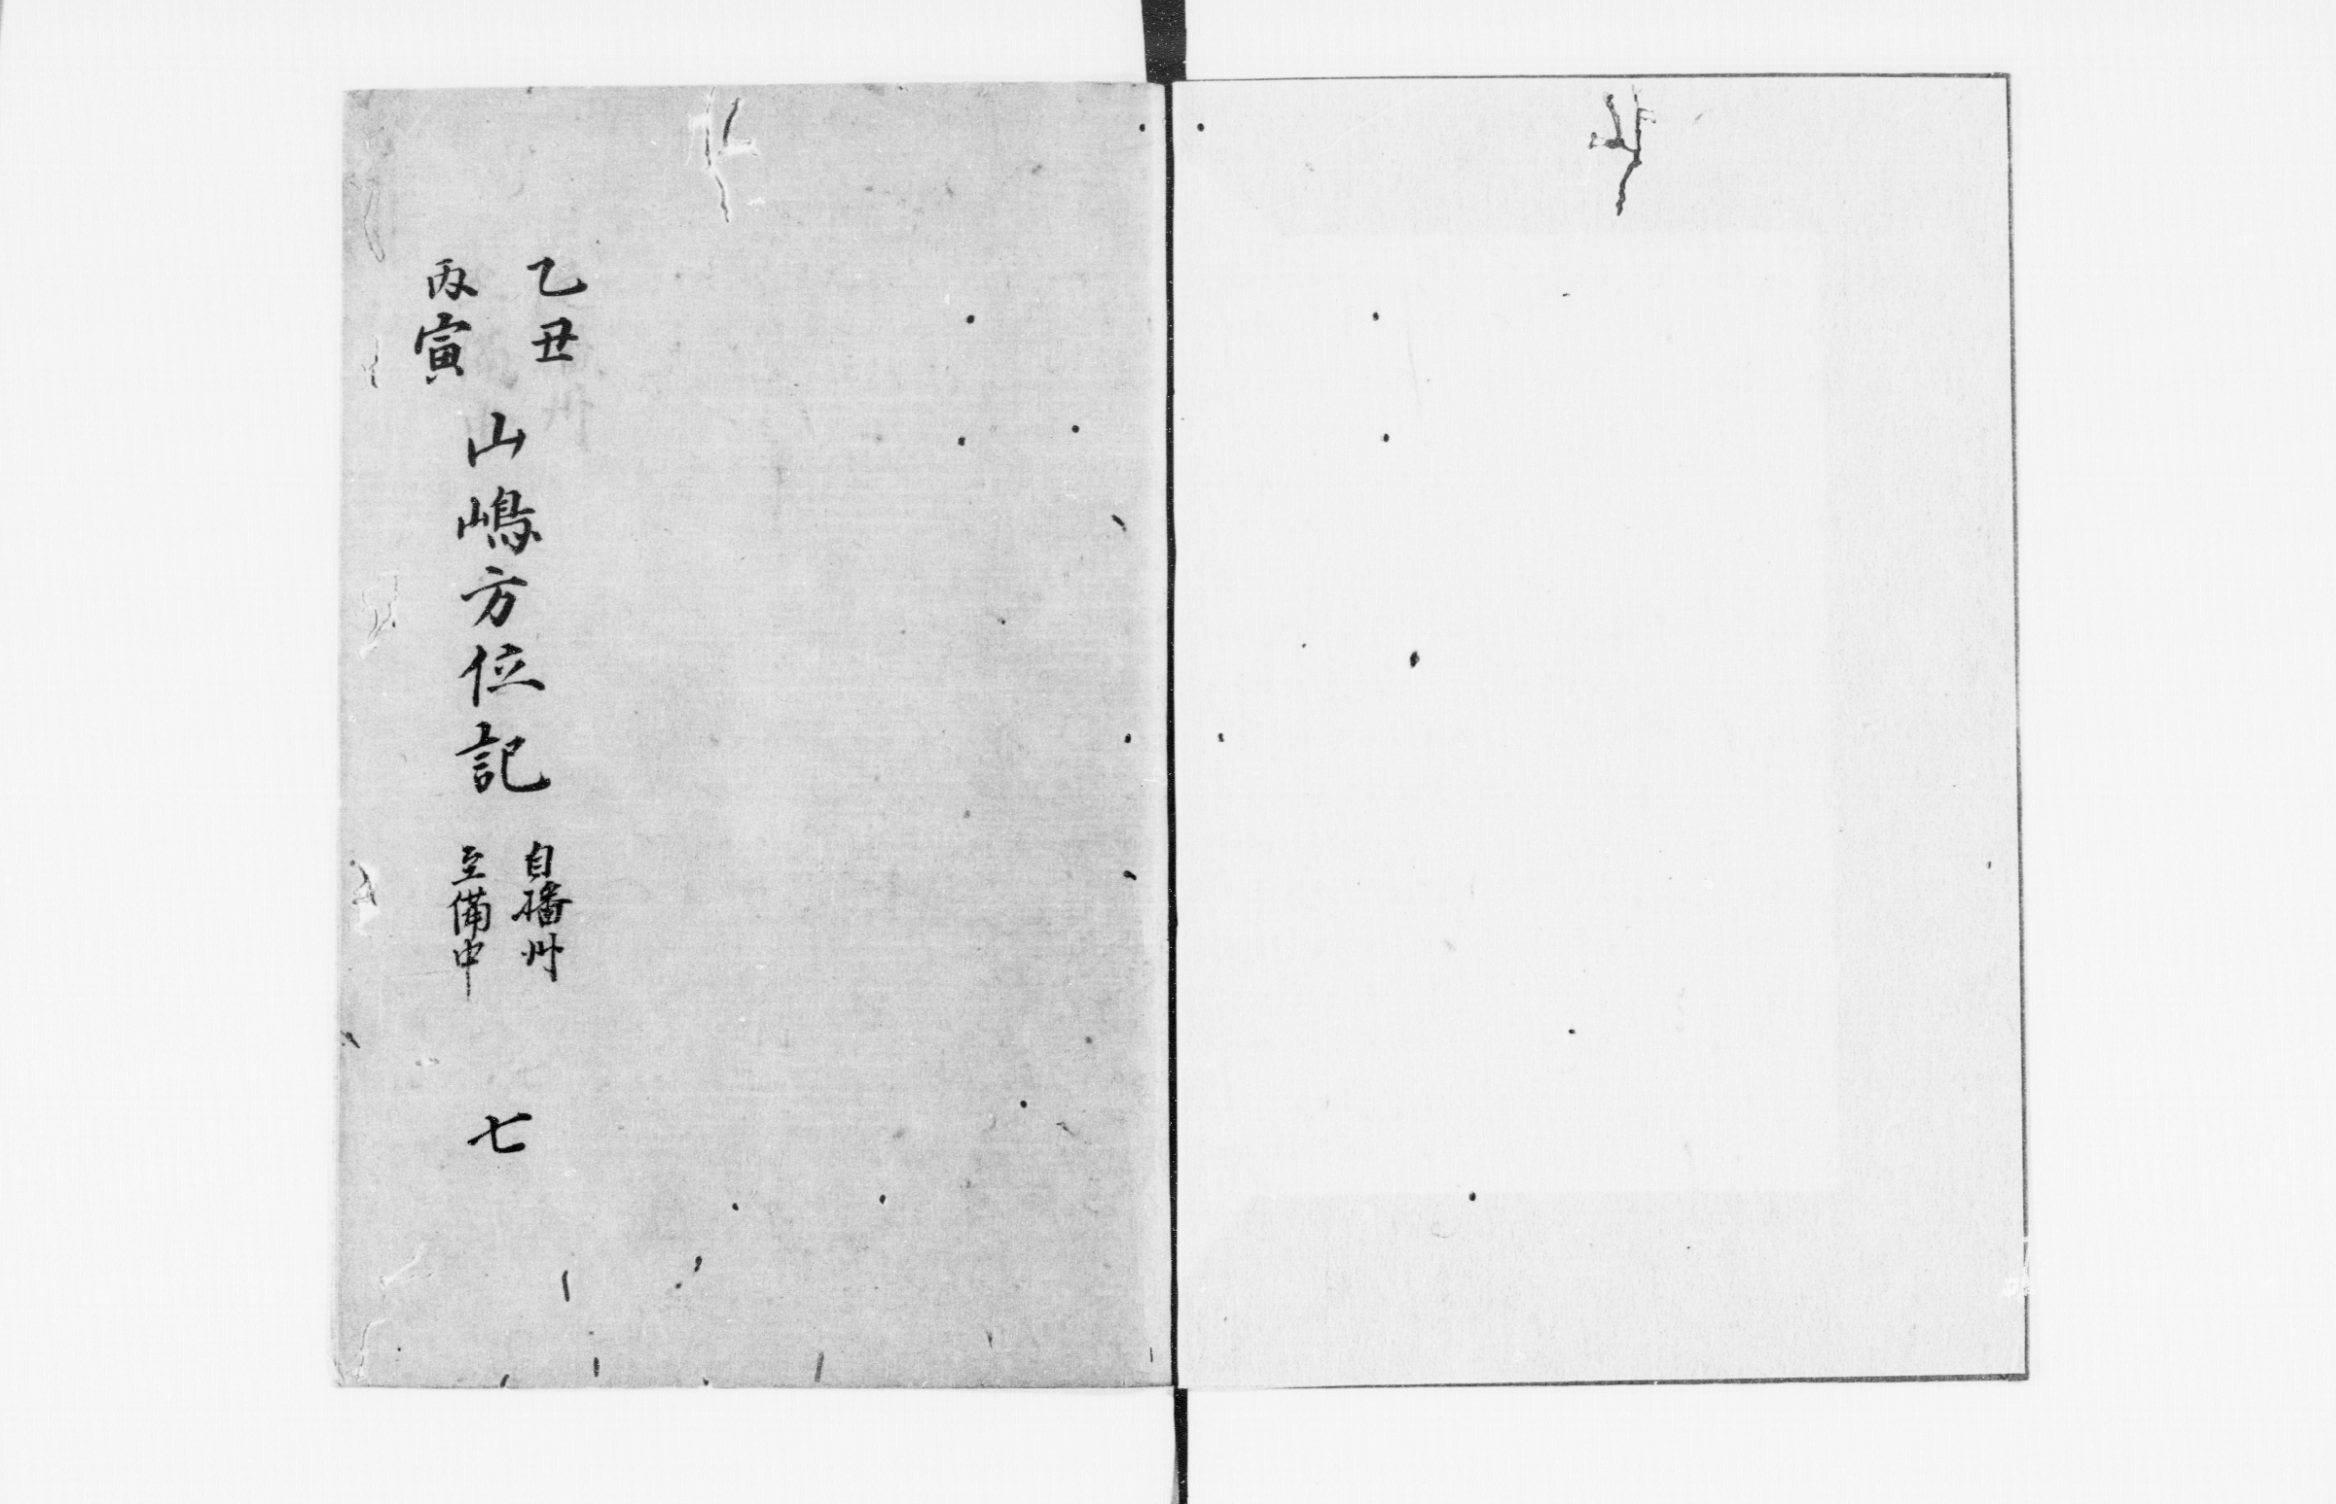 乙丑
丙寅
山嶋方位記
自播州
至備中
七